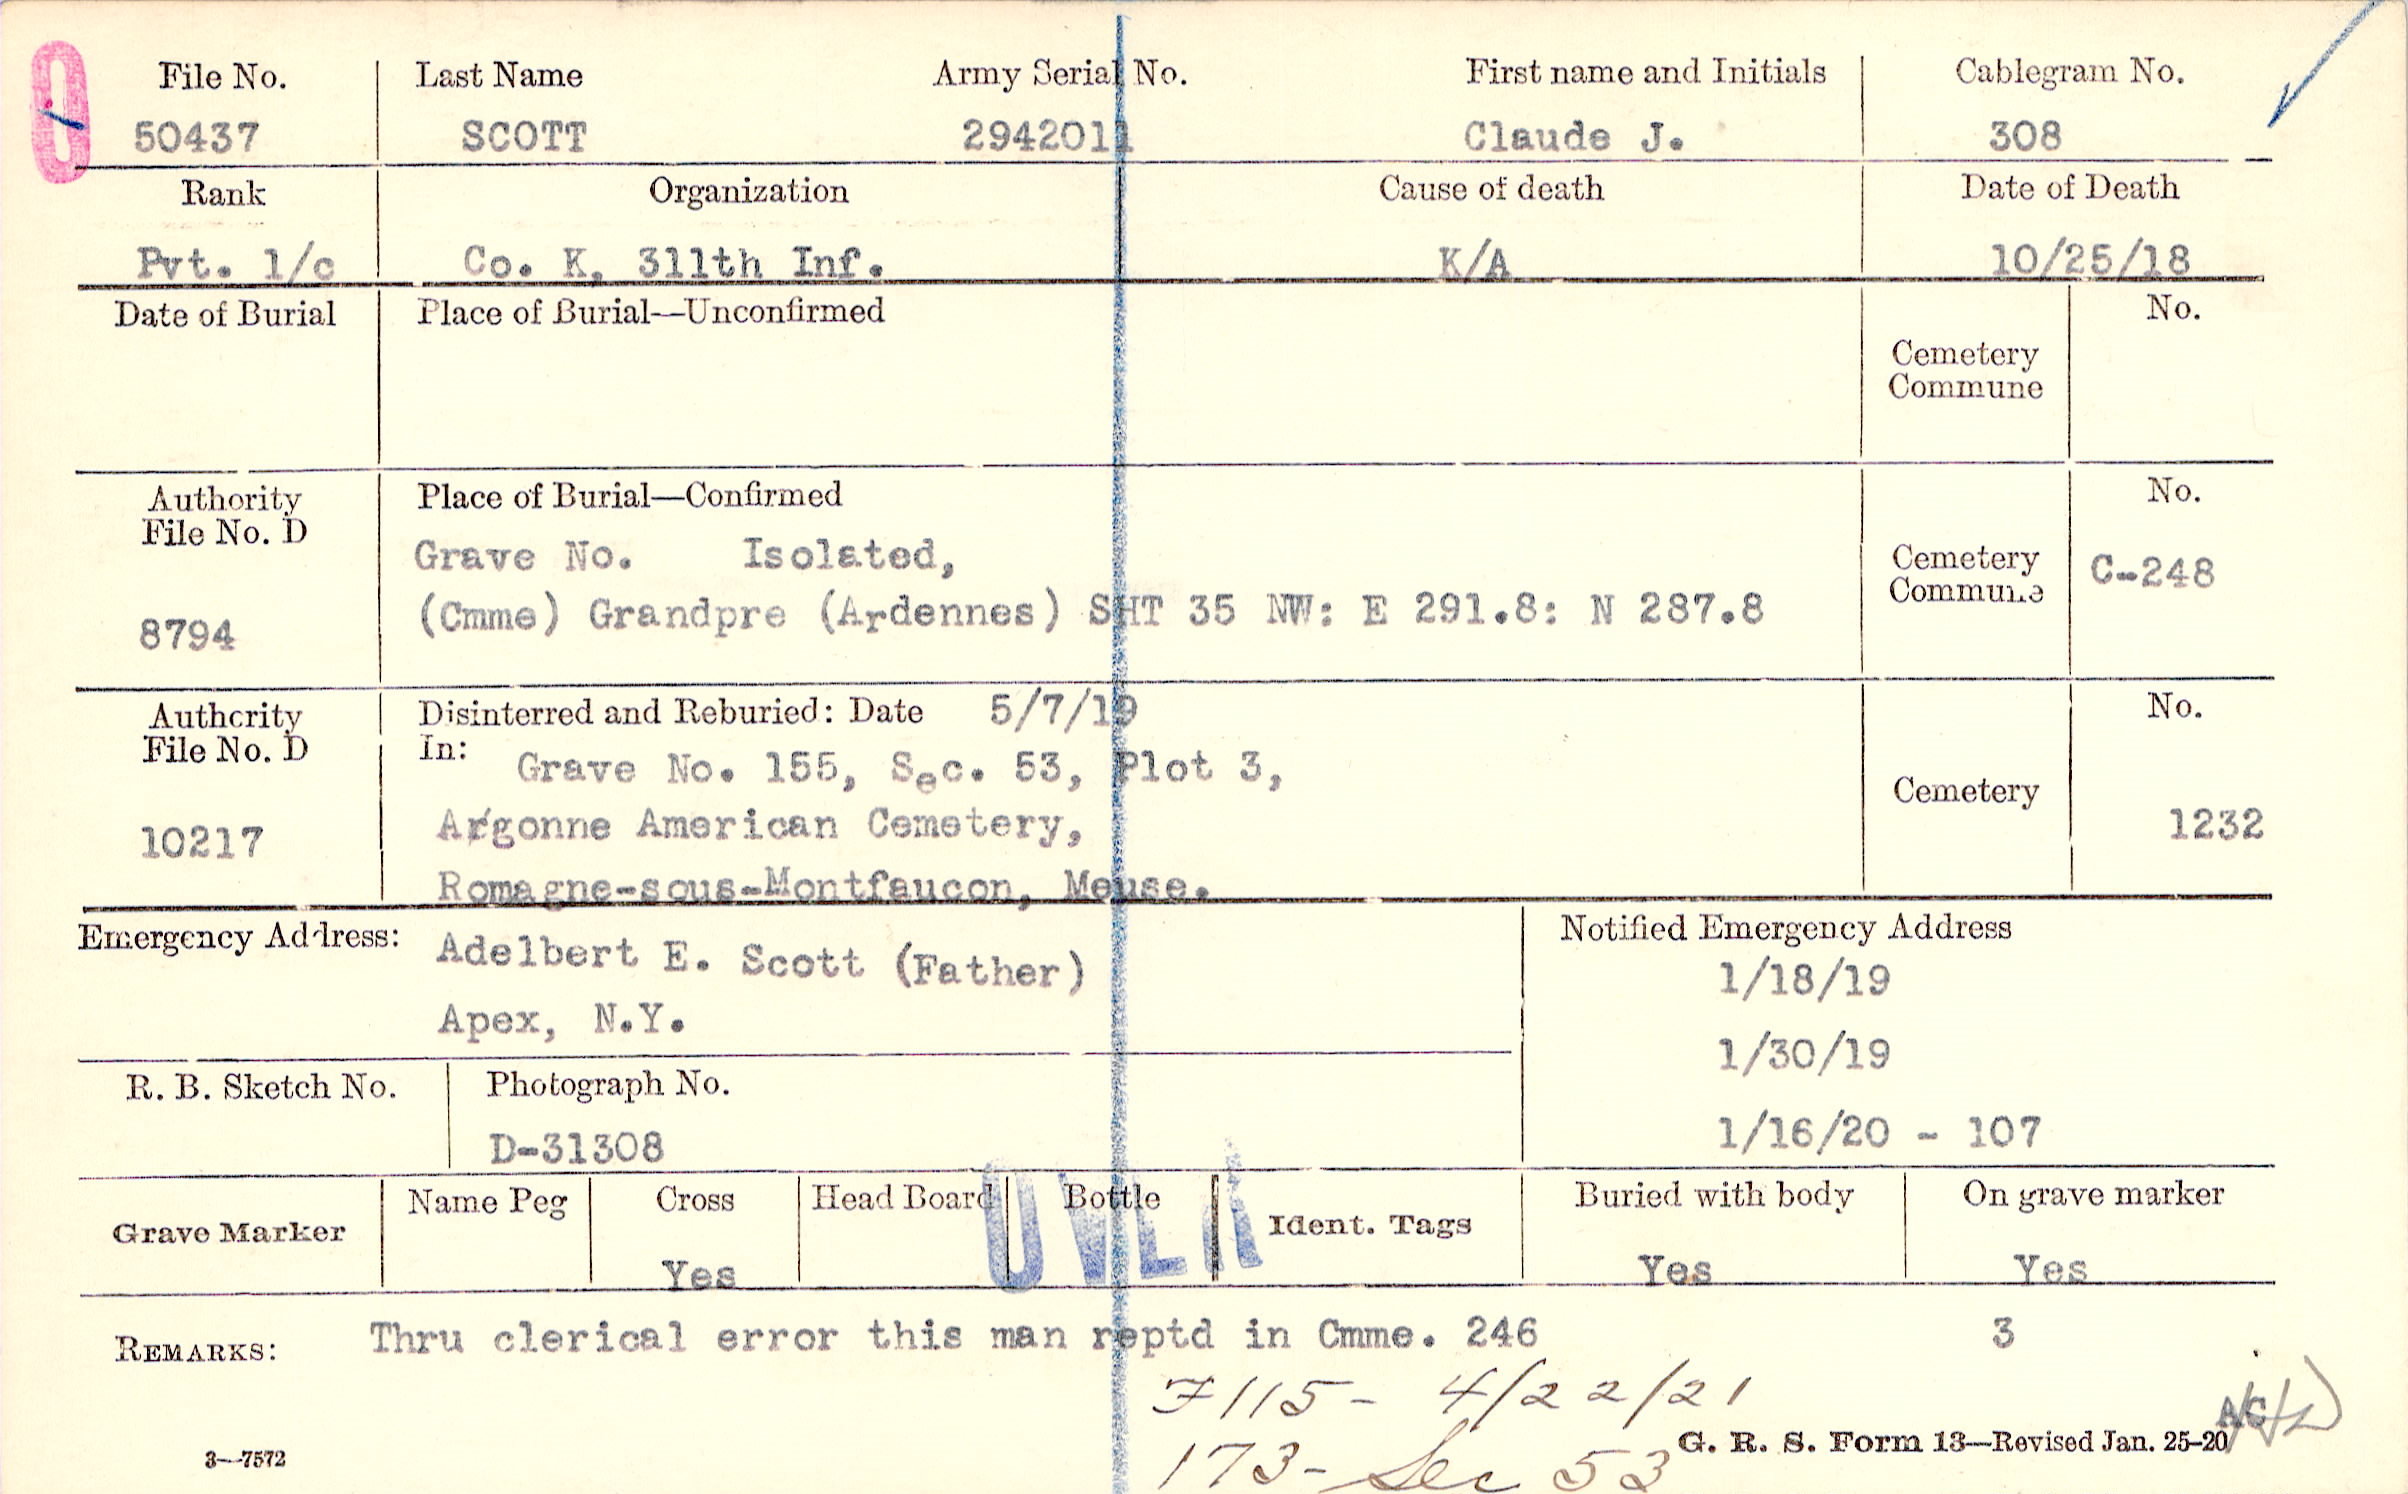 File No. Last Name Army Serial No. First name and Initials Cablegram No.
50437 SCOTT 2942011 Claude J. 308
Rank Organization Cause of death Date of Death
Pvt. 1/c Co. K, 311th Inf. K/A 10/25/18
Date of Burial Place of Burial—Unconfirmed No.
Cemetery
Commune
Authority Place of Burial—Confirmed No.
File No. D
Grave No. Isolated,
Cemetery
Commune C-248
8794 (Cmme) Grandpre (Ardennes) SHT 35 NW: E 291.8: N 287.8
Authority Disinterred and Reburied: Date 5/7/19 No.
File No. D In:
Grave No. 155, Sec. 53, Plot 3,
Cemetery
10217 Argonne American Cemetery, 1232
Romagne-sous-Montfaucon, Meuse.
Emergency Address: Adelbert E. Scott (Father) Notified Emergency Address
1/18/19
Apex, N.Y.
1/30/19
R. B. Sketch No. Photograph No.
D-31308 1/16/20 - 107
Grave Marker Name Peg Cross Head Board Bottle Ident. Tags Buried with body On grave marker
Yes Yes Yes
OVER
REMARKS: Thru clerical error this man reptd in Cmme. 246 3
F115- 4/22/21
173- Sec 53
3—7572 G. R. S. Form 13—Revised Jan. 25-20